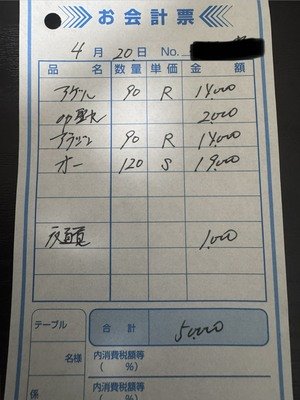 お会計票
4月20日 No.
品名 数量 単価 金額
90 R 14000
2000
90 R 14000
オー 120 S 19000
1000
テーブル 合計 50000
名様 内消費税額等
( %)
係 内消費税額等
( %)